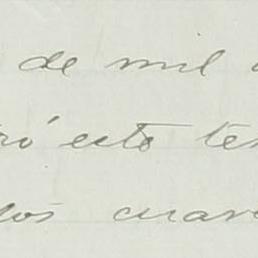 de mil
ró esto tes
los cuaren